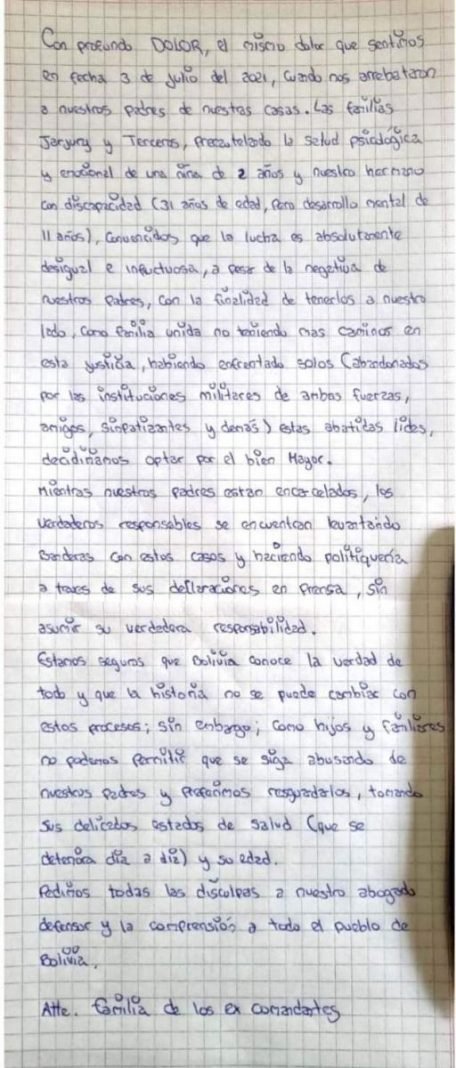 Con profundo DOLOR, el mismo dolor que sentimos
en fecha 3 de julio del 2021, cuando nos arrebataron
a nuestros padres de nuestas casas. Las familias
Jarjury y Terceros, precautelando la salud psicológica
y emocional de una niña de 2 años y nuestro hermano
con discapacidad (31 años de edad, pero desarrollo mental de
11 años), convencidos que la lucha es absolutamente
desigual e infuctuosa, a pesar de la negativa de
nuestros padres, con la finalidad de tenerlos a nuestro
lado, como familia unida no teniendo mas caminos en
esta justicia, habiendo enfrentado solos (abandonados
por las instituciones militares de ambas fuerzas,
amigos, simpatizantes y demás) estas abatidas lides,
decidiríamos optar por el bien Mayor.
Mientras nuestros padres estan encarcelados, los
verdaderos responsables se encuentran levantando
banderas con estos casos y haciendo politiquería
a traves de sus declaraciones en prensa, sin
asumir su verdadera responsabilidad.
Estamos seguros que Bolivia conoce la verdad de
todo y que la historia no se puede cambiar con
estos procesos; sin embargo; como hijos y familiares
no podemos permitir que se siga abusando de
nuestros padres y preferimos resguardarlos, tomando
sus delicados estados de salud (que se
deteriora día a día) y su edad.
Pedimos todas las disculpas a nuestro abogado
defensor y la comprensión a todo el pueblo de
Bolivia.
Atte. familia de los ex comandantes